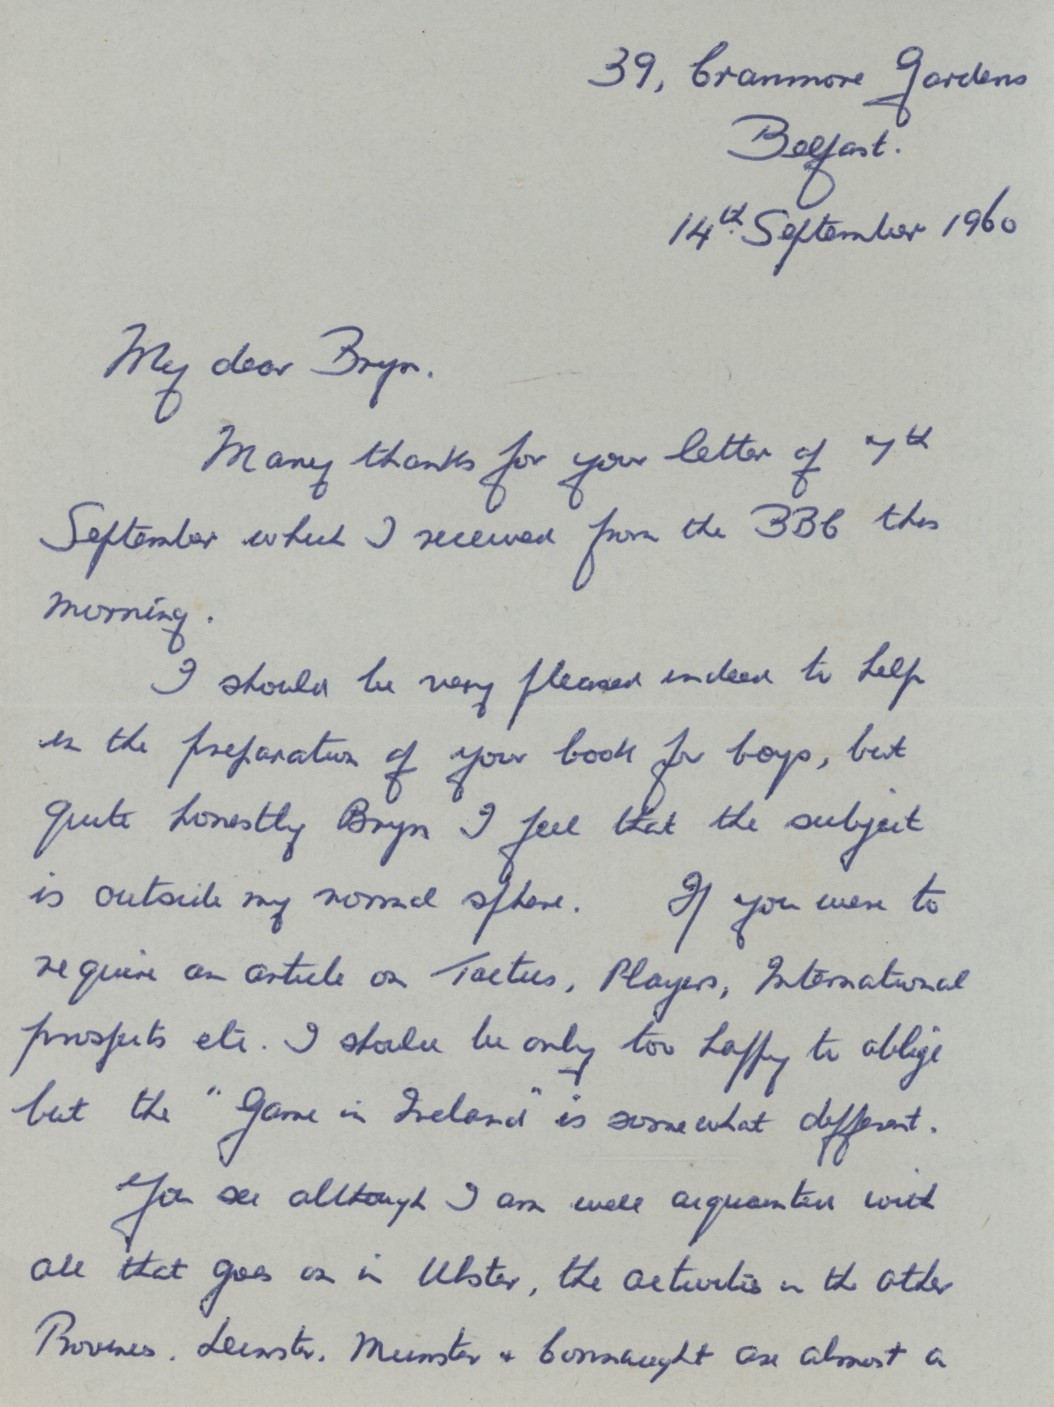 39, Cranmore Gardens
Belfast.
14th September 1960
My dear Bryn.
Many thanks for your letter of 7th
September which I received from the BBC this
morning.
I should be very pleased indeed to help
in the preparation of your book for boys, but
quite honestly Bryn I feel that the subject
is outside my normal sphere. If you were to
require an article on Tactics, Players, International
prospects etc. I should be only too happy to oblige
but the "Game in Ireland" is somewhat different.
You see although I am well acquainted with
all that goes on in Ulster, the activities in the other
Provinces. Leinster, Munster + Connaught are almost a